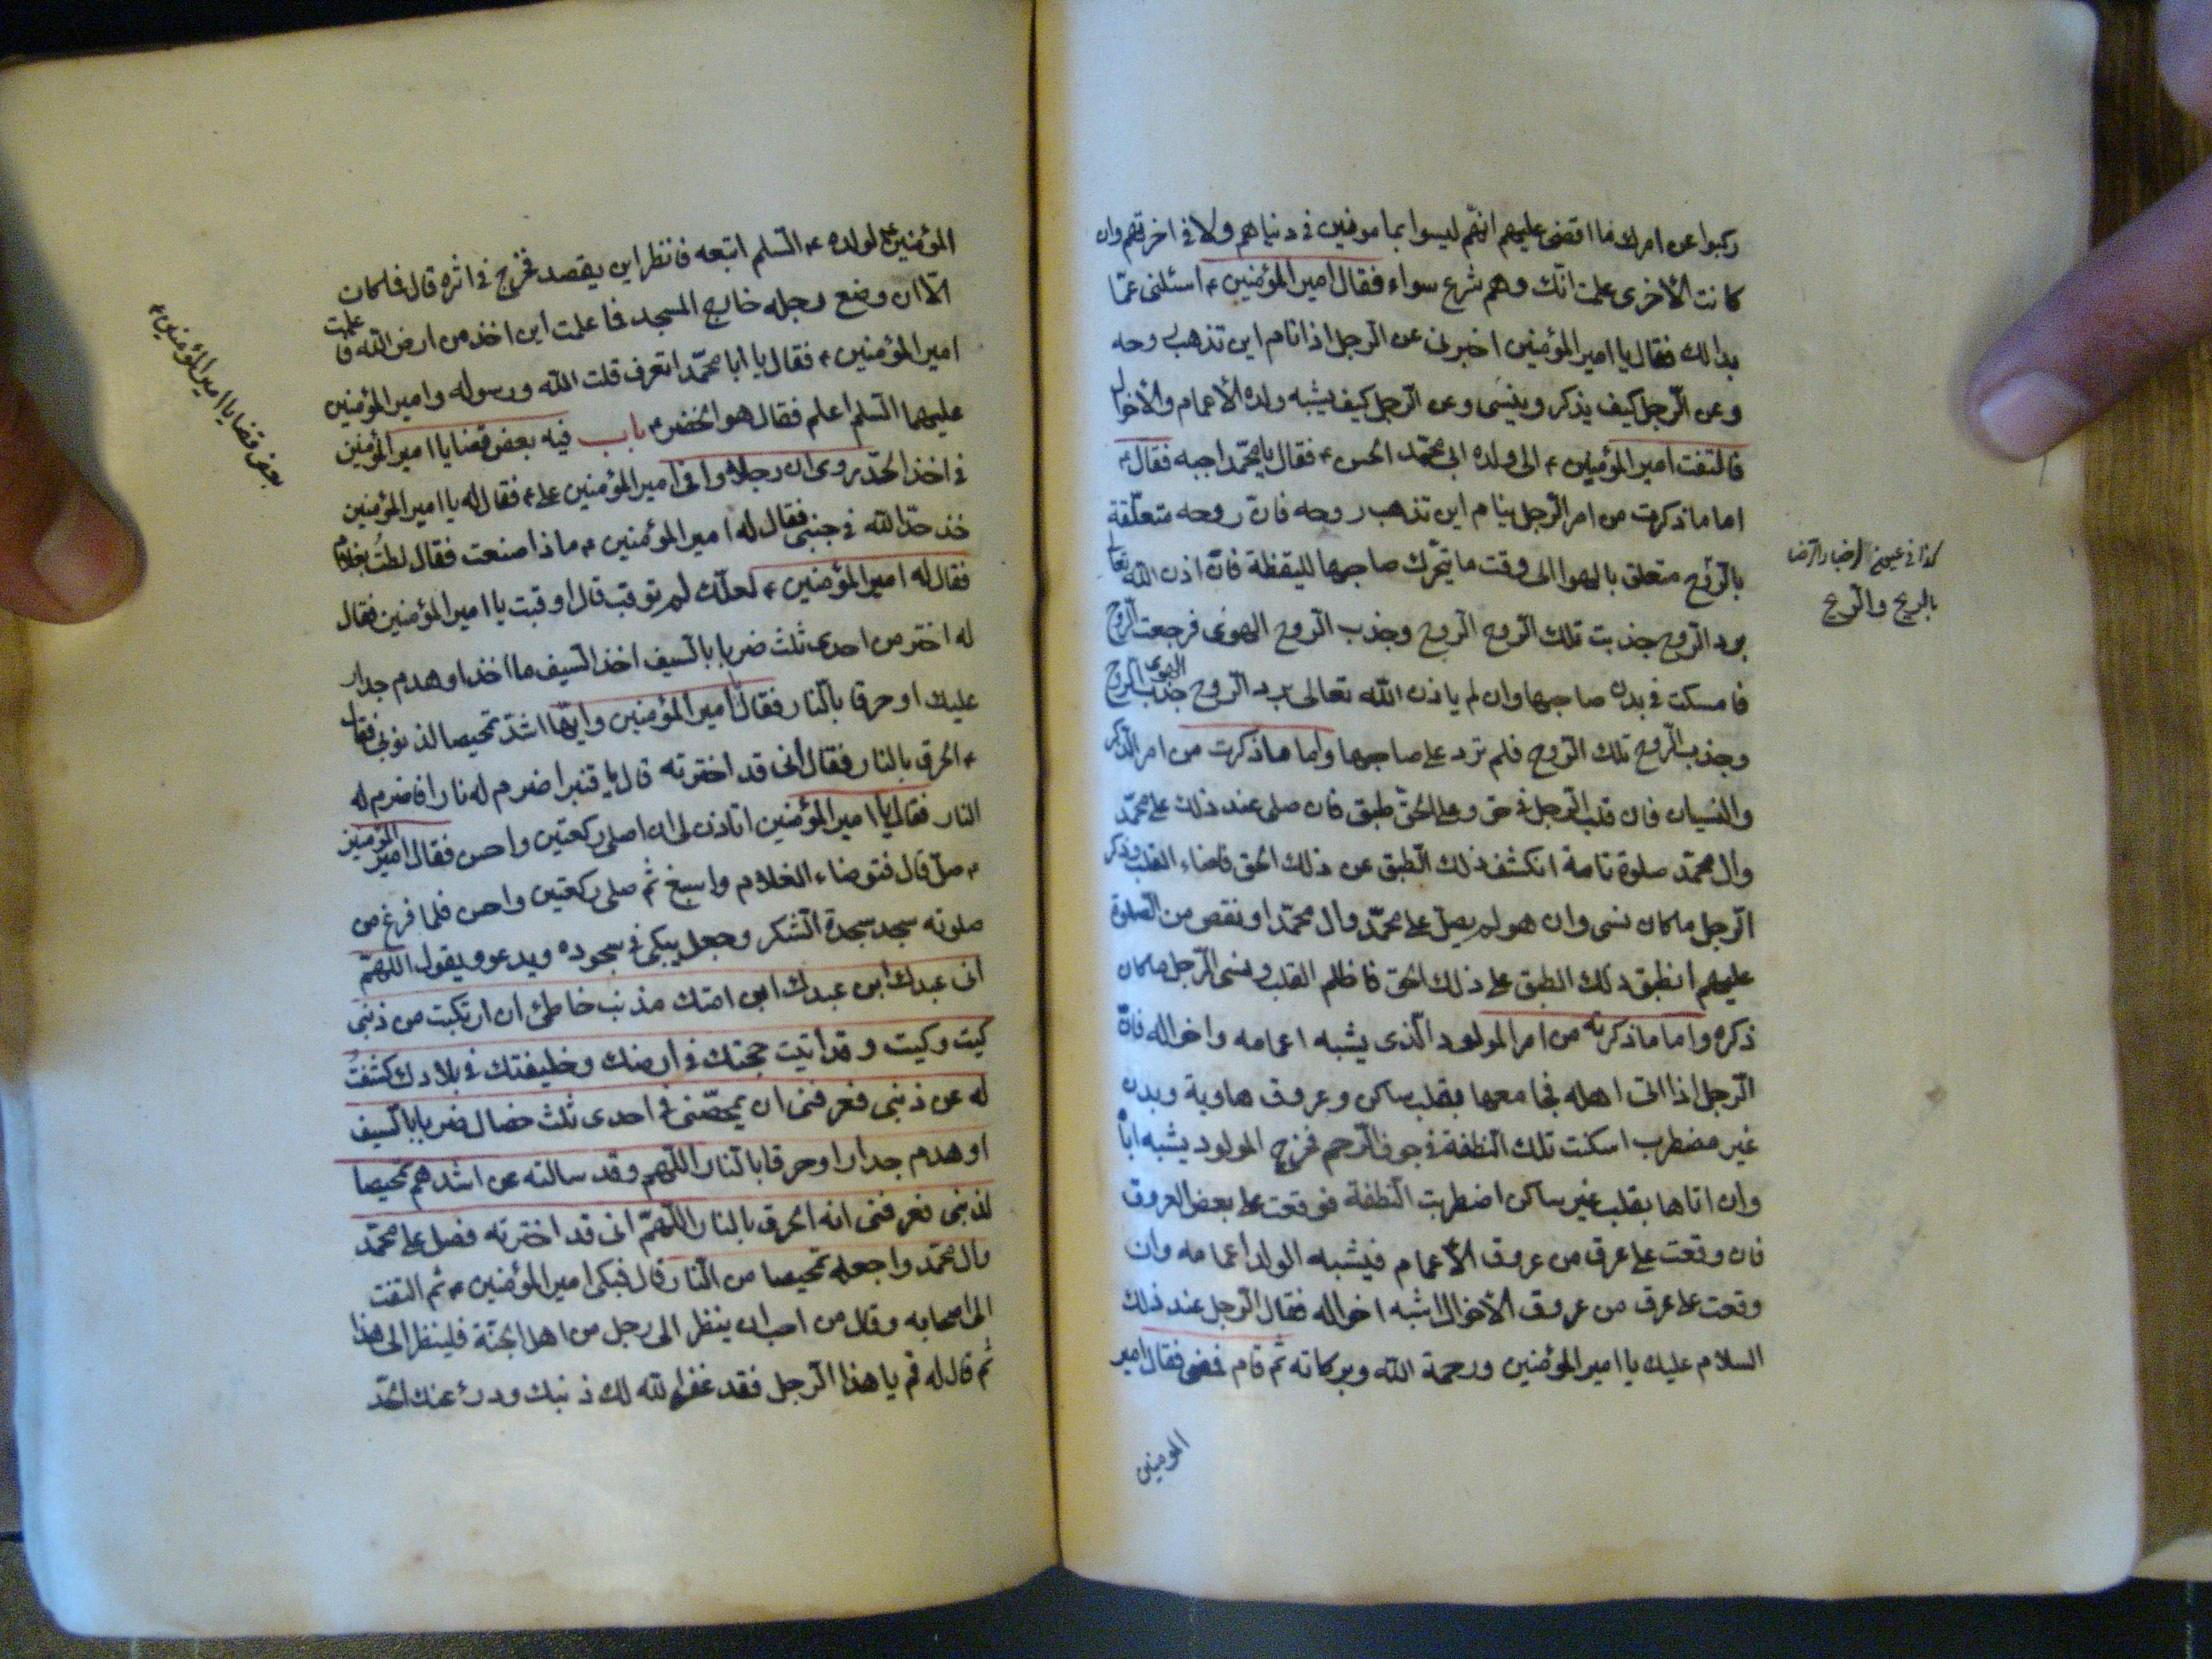 ركبوا عن امرك ما اقضى عليهم انهم ليسوا بمامونين في دنياهم ولا في اخرتهم وان
كانت الأخرى علمت انّك وهم شرع سواء فقال امير المؤمنين ء اسئلنى عمّا
بدالك فقال يا امير المؤمنين اخبرنى عن الرجل اذا نام اين تذهب روحه
وعن الرّجل كيف يذكر وينسى وعن الرجل كيف يشبه ولده الأعمام والأخوال
فالتفت امير المؤمنين ء الى ولده ابى محمّد الحسن ء فقال يابا محمّد اجبه فقال ء
اما ما ذكرت من امر الرّجل ينام اين تذهب روحه فانّ روحه متعلّقة
بالرّوح متعلق بالهوا الى وقت ما يتحرّك صاحبها لليقظة فانّ اذن الله تعا
برد الروح جذبت تلك الروح الروح وجذب الروح الهوى فرجعت الروح
فامسكت في بدن صاحبها وان لم ياذن الله تعالى برد الروح جذب الهوى الروح
وجذب الرّوح تلك الرّوح فلم ترد على صاحبها واما ما ذكرت من امر الذكر
والنسيان فان قلب الرّجل في حق وعلى الحقّ طبق فان صلى عند ذلك على محمّد
وال محمّد صلوة تامة انكشف ذلك الطبق عن ذلك الحق فاضاء القلب وذكر
الرّجل ما كان نسى وان هو لم يصلّ على محمّد وال محمّد او نقص من الصلوة
عليهم انطبق ذلك الطبق على ذلك الحق فاظلم القلب ونسى الرّجل ما كان
ذكره واما ما ذكرته من امر المولود الّذى يشبه اعمامه واخواله فانّ
الرّجل اذا اتى اهله فجامعها بقلب ساكن وعروق هادية وبدن
غير مضطرب اسكنت تلك النطفة في جوف الرّحم فخرج المولود يشبه اباه
وان اتاها بقلب غير ساكن اضطربت النّطفة فوقعت على بعض العروق
فان وقعت على عرق من عروق الأعمام فيشبه الولد اعمامه وان
وقعت على عرق من عروق الأخوال اشبه اخواله فقال الرّجل عند ذلك
السلام عليك يا امير المؤمنين ورحمة الله وبركاته ثم قام فمضى فقال امير
المومنين
كذا في عيون اخبار الرضا
بالريح والريح
المؤمنين ع لولده ء السّلم اتبعه فانظر اين يقصد فخرج في اثره قال فلما كان
الّا ان وضع رجله خارج المسجد فما علمت اين اخذ من ارض الله فاعلمت
امير المؤمنين ء فقال يا ابا محمّد اتعرف قلت الله ورسوله وامير المؤمنين
عليهما السّلم اعلم فقال هو الخضر ء باب فيه بعض قضايا امير المؤمنين
في اخذ الحدّ روى ان رجلا وافى امير المؤمنين علىء فقال له يا امير المؤمنين
خذ حدّ الله في جنبى فقال له امير المؤمنين ء ماذا صنعت فقال لطت بغلام
فقال له امير المؤمنين ء لعلّك لم توقب قال اوقبت يا امير المؤمنين فقال
له اختر من احدى ثلث ضربا بالسّيف اخذ السّيف ما اخذ او هدم جدار
عليك او حرقا بالنّار فقال امير المؤمنين وايّها اشدّ تمحيصا لذنوبى فقال
ء الحرق بالنار فقال انى قد اخترته قال يا قنبر اضرم له نارا فاضرم له
النار فقال يا امير المؤمنين اتاذن لى ان اصلى ركعتين واحسن فقال امير المؤمنين
ء صلّ قال فتوضاء الغلام واسبغ ثم صلى ركعتين واحسن فلما فرغ من
صلوته سجد سجدة الشكر وجعل يبكى في سجوده ويدعو ويقول اللّهمّ
انى عبدك ابن عبدك ابن امتك مذنب خاطئ ان ارتكبت من ذنبى
كيت وكيت وقد اتيت حجتك في ارضك وخليفتك في بلادك كشفت
له عن ذنبى فعرفنى ان تمحّصنى في احدى ثلث خصال ضربا بالسّيف
او هدم جدارا او حرقا بالنار اللّهم وقد سالته عن اشدهم تمحيصا
لذنبى فعرفنى انه الحرق بالنار اللّهمّ انى قد اخترته فصل على محمّد
وال محمّد واجعله تمحيصا من النّار قال فبكى امير المؤمنين ء ثم التفت
الى اصحابه وقال من احب ان ينظر الى رجل من اهل الجنّة فلينظر الى هذا
ثم قال له قم يا هذا الرّجل فقد غفر الله لك ذنبك ودرئ عنك الحدّ
بعض قضايا امير المؤمنين ء